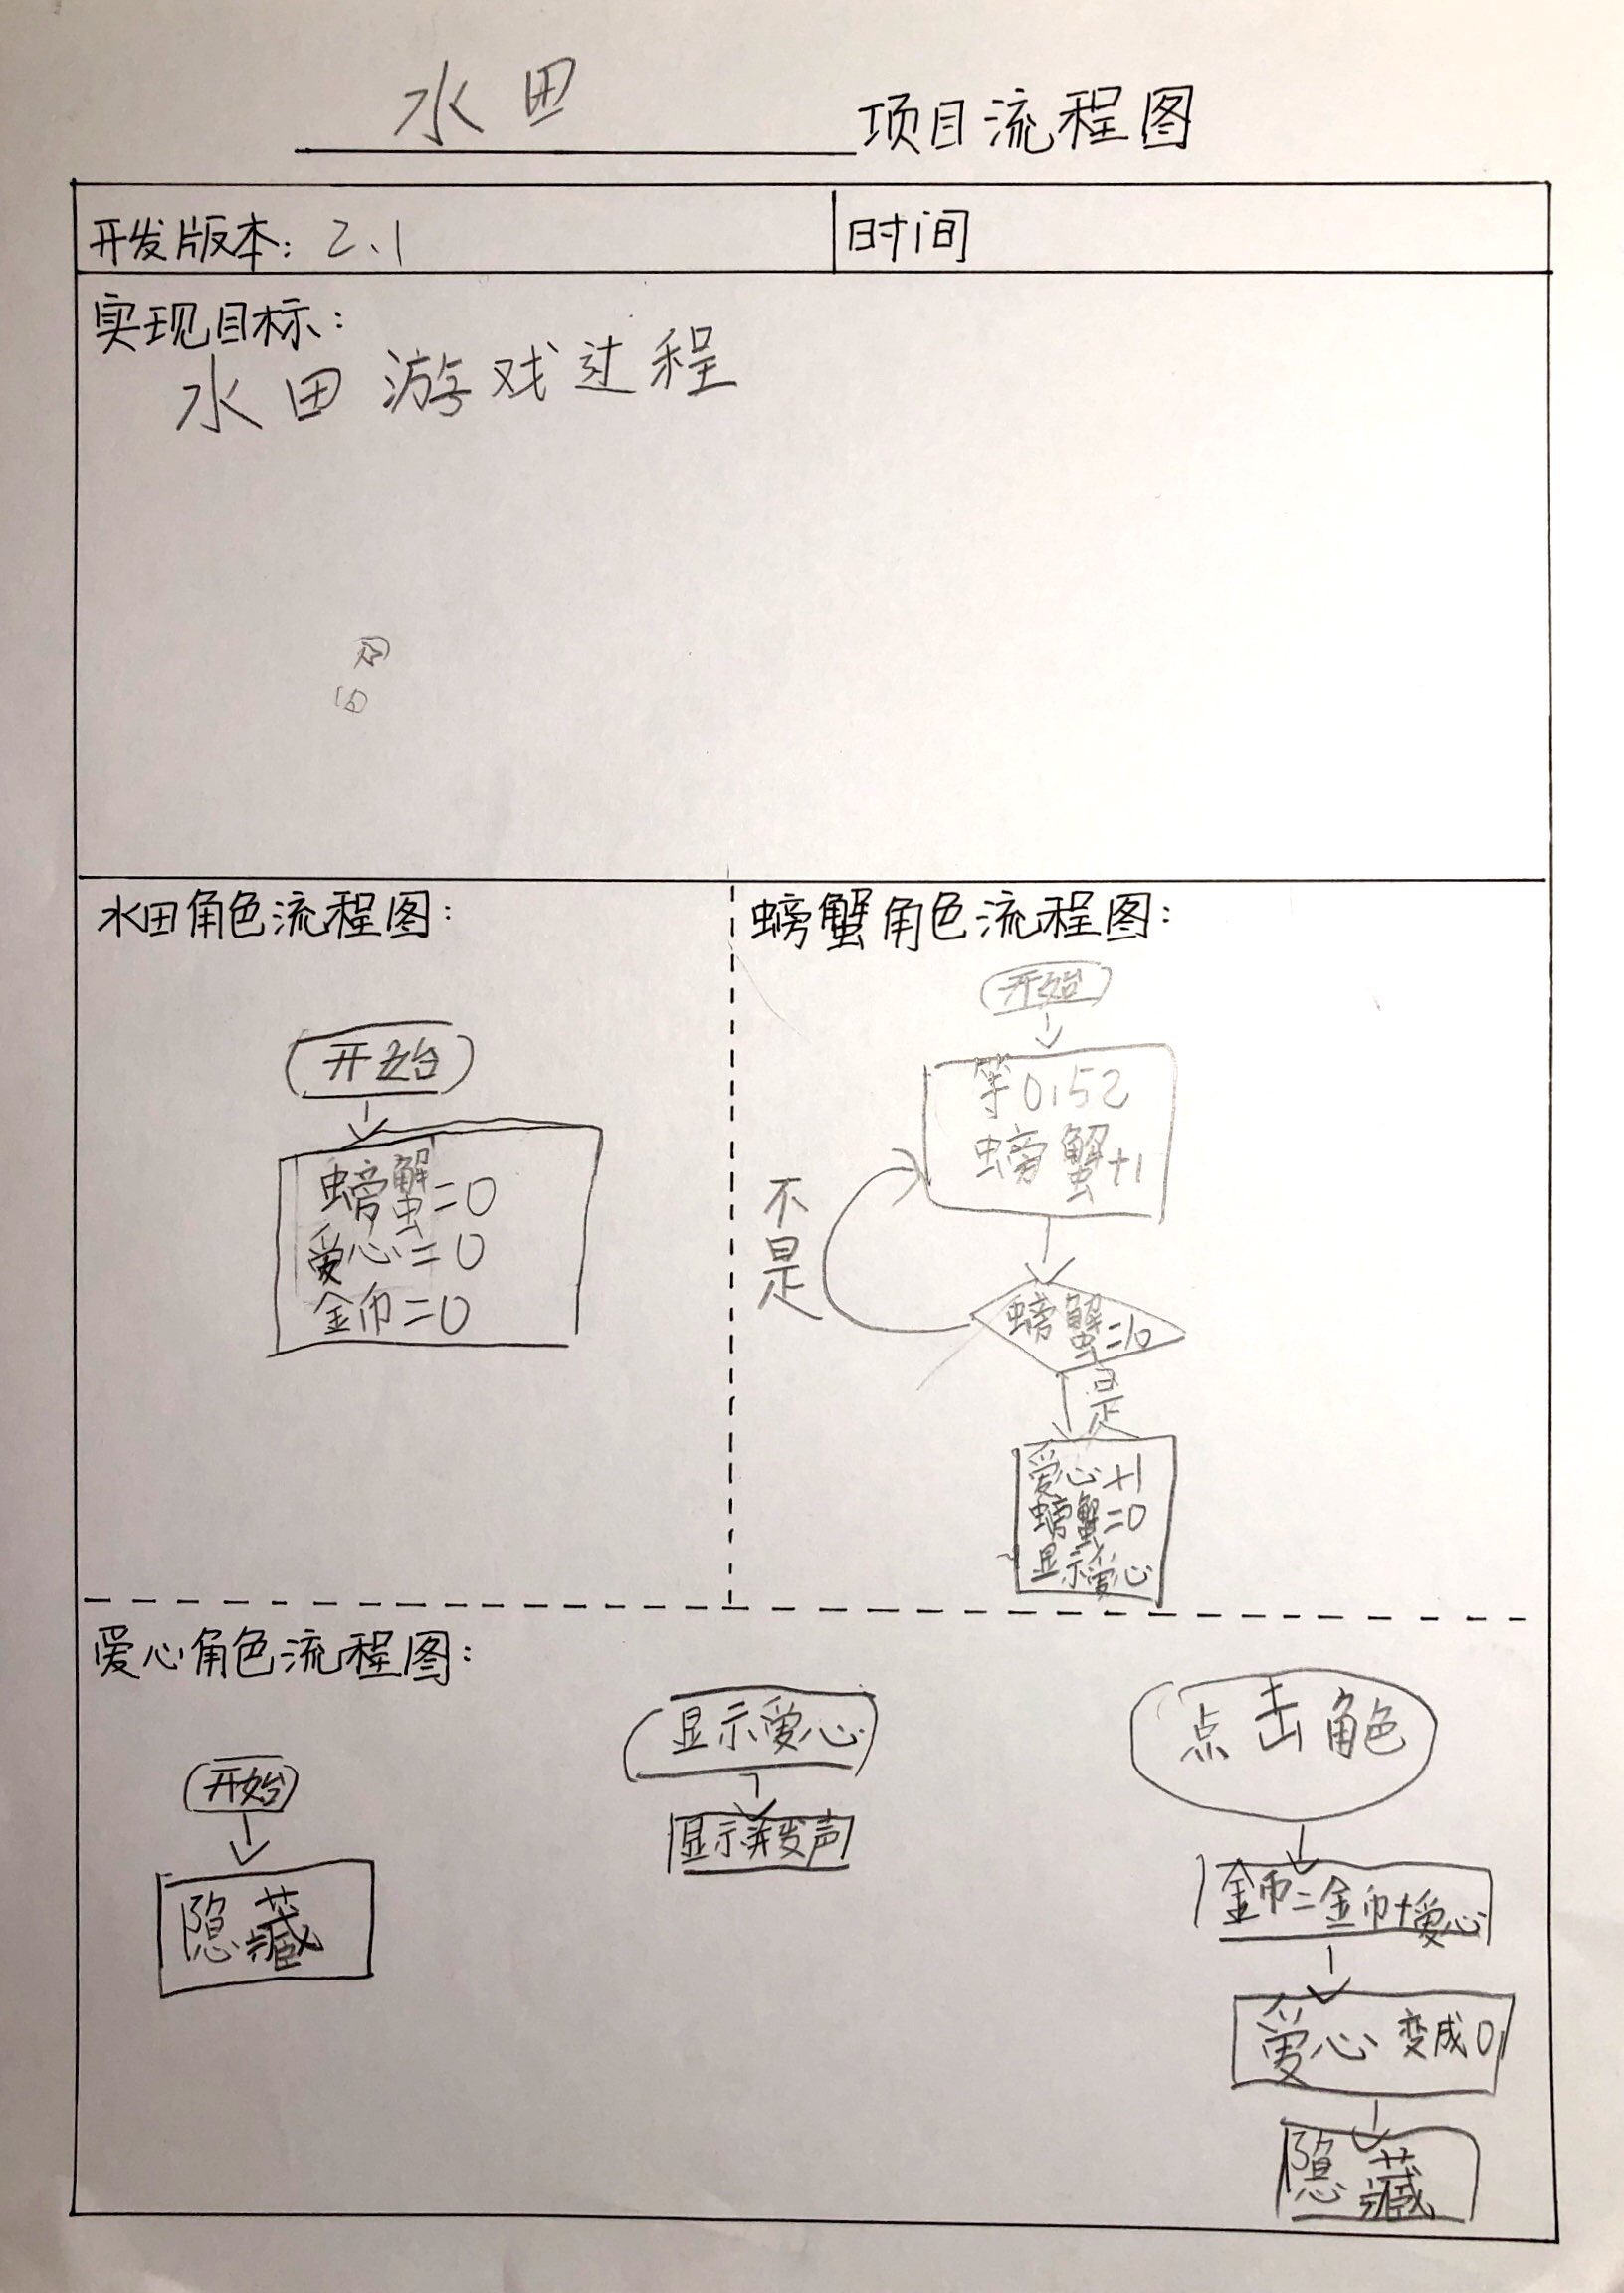 水田 项目流程图
开发版本：2、1
时间
实现目标：
水田游戏过程
水田角色流程图：
开始
螃蟹=0
爱心=0
金币=0
螃蟹角色流程图：
开始
螃蟹+1
不是
螃蟹=10
是
爱心+1
螃蟹=0
显示爱心
爱心角色流程图：
开始
隐藏
显示爱心
显示并发声
点击角色
金币=金币+爱心
爱心变成0
隐藏